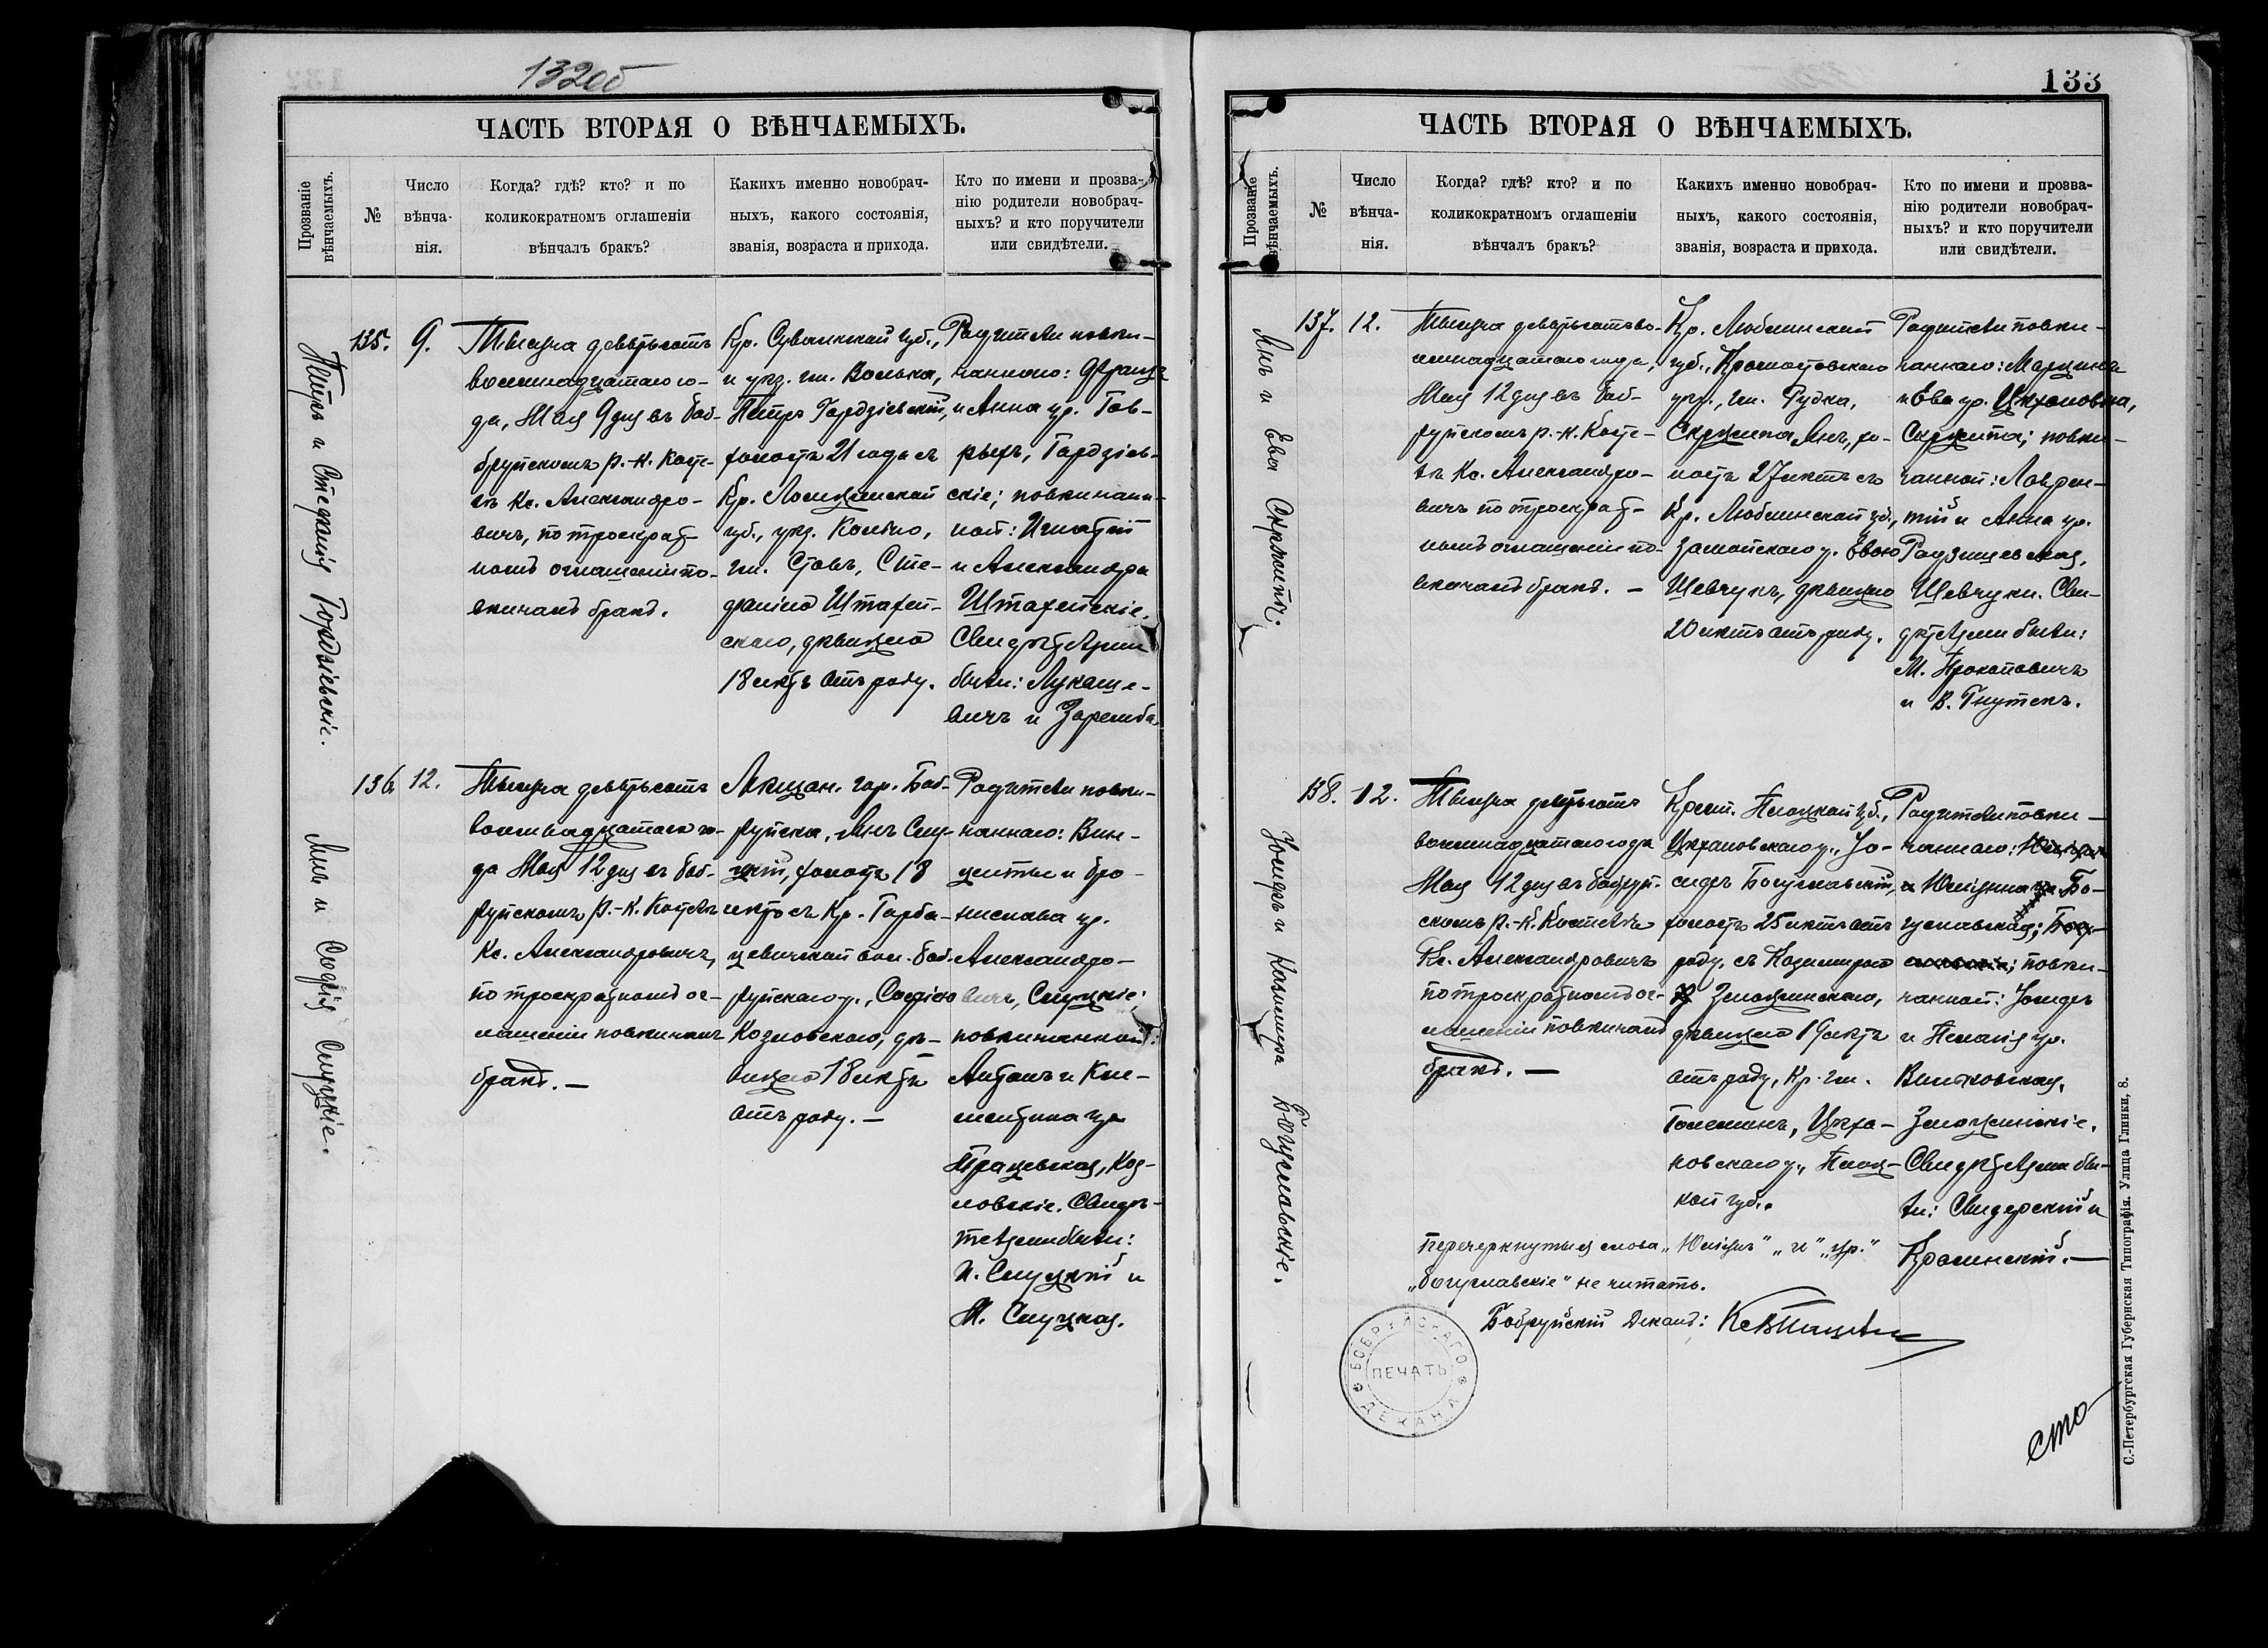 132об
ЧАСТЬ ВТОРАЯ О ВѢНЧАЕМЫХЪ.
Прозваніе
вѣнчаемыхъ.
№
Число
вѣнча-
нія.
Когда? гдѣ? кто? и по
коликократномъ оглашеніи
вѣнчалъ бракъ?
Какихъ именно новобрач-
ныхъ, какого состоянія,
званія, возраста и прихода.
Кто по имени и прозва-
нію родители новобрач-
ныхъ? и кто поручители
или свидѣтели.
Петръ и Стефанія Гордзіевскіе.
135.
9.
Тысяча девятьсотъ
восемнадцатаго го-
да, Мая 9 дня въ Боб-
руйскомъ р.-к. Косте-
лѣ Кс. Александро-
вичъ, по троекрат-
номъ оглашеніи по-
вѣнчалъ бракъ.
Кр. Сувалкской губ.,
и уѣз. гм. Волька,
Петръ Гордзіевскій,
холостъ 21 года съ
Кр. Ломжинской
губ., уѣз. Кольно,
гм. Ставъ, Сте-
фанію Штахей-
скаго, дѣвицею
18 лѣтъ отъ роду.
Родители повѣн-
чаннаго: Францъ
и Анна ур. Гав-
рыхъ, Гордзіев-
скіе; повѣнчанн-
ной: Игнатій
и Александра
Штахейскіе.
Свидѣтелями
были: Лукаше-
вичъ и Заремба.
Янъ и Софія Слуцкіе.
136.
12.
Тысяча девятьсотъ
восемнадцатаго го-
да Мая 12 дня въ Боб-
руйскомъ р.-к. Костелѣ
Кс. Александровичъ,
по троекратномъ ог-
лашеніи повѣнчалъ
бракъ. —
Мѣщан. гор. Боб-
руйска, Янъ Слу-
цкій, холостъ 18
лѣтъ съ Кр. Горба-
цевичской вол. Боб-
руйскаго у., Софією
Козловскаго, дѣ-
вицею 18 лѣтъ
отъ роду. —
Родители повѣн-
чаннаго: Вин-
центы и Бро-
нислава ур.
Александро-
вичъ, Слуцкіе;
повѣнчанной:
Антонъ и Кле-
ментина ур.
Працевская, Коз-
ловскіе. Свидѣ-
телями были:
И. Слуцкій и
М. Слуцкая.
133
ЧАСТЬ ВТОРАЯ О ВѢНЧАЕМЫХЪ.
Прозваніе
вѣнчаемыхъ.
№
Число
вѣнча-
нія.
Когда? гдѣ? кто? и по
коликократномъ оглашеніи
вѣнчалъ бракъ?
Какихъ именно новобрач-
ныхъ, какого состоянія,
званія, возраста и прихода.
Кто по имени и прозва-
нію родители новобрач-
ныхъ? и кто поручители
или свидѣтели.
Янъ и Ева
137.
12.
Тысяча девятьсотъ во-
семнадцатаго года,
Мая 12 дня въ Боб-
руйскомъ р.-к. Косте-
лѣ Кс. Александро-
вичъ по троекрат-
номъ оглашеніи по-
вѣнчалъ бракъ. —
Кр. Люблинской
губ., Красноставскаго
уѣз., гм. Рудка,
Янъ, хо-
лостъ 27 лѣтъ съ
Кр. Люблинской губ.,
Замойскаго у. Евою
Шевчукъ, дѣвицею
20 лѣтъ отъ роду.
Родители повѣн-
чаннаго: Марцина
и Ева ур.
повѣн-
чанной: Лаврен-
тій и Анна ур.
Радзишевская,
Шевчуки. Сви-
дѣтелями были:
М. Прокоповичъ
и В. Гнутекъ.
Іосифъ и Казимира Богуславскіе.
138.
12.
Тысяча девятьсотъ
восемнадцатаго года
Мая 12 дня въ Бобруй-
скомъ р.-к. Костелѣ
Кс. Александровичъ
по троекратномъ ог-
лашеніи повѣнчалъ
бракъ. —
Крест. Плоцкой губ.,
Цѣхановскаго у., Іо-
сифъ Богуславскій,
холостъ 25 лѣтъ отъ
роду, съ Казимирою
Змочинскаго,
дѣвицею 19 лѣтъ
отъ роду, Кр. гм.
Големинъ, Цѣха-
новскаго у., Плоц-
кой губ.
Родители повѣн-
чаннаго: Юліанъ
и Юліанна ур. Бо-
гуславская; Богу-
славскіе; повѣн-
чанной: Іосифъ
и Пелагія ур.
Витковская,
Змочинскіе.
Свидѣтелями бы-
ли: Свидерскій и
Красинскій. —
Перечеркнутыя слова „Юліанъ" „и" „ур."
„Богуславскіе" не читать.
Бобруйскій Деканъ:
БОБРУЙСКАГО
ПЕЧАТЬ
ДЕКАНА
сто
С.-Петербургская Губернская Типографія. Улица Глинки, 8.